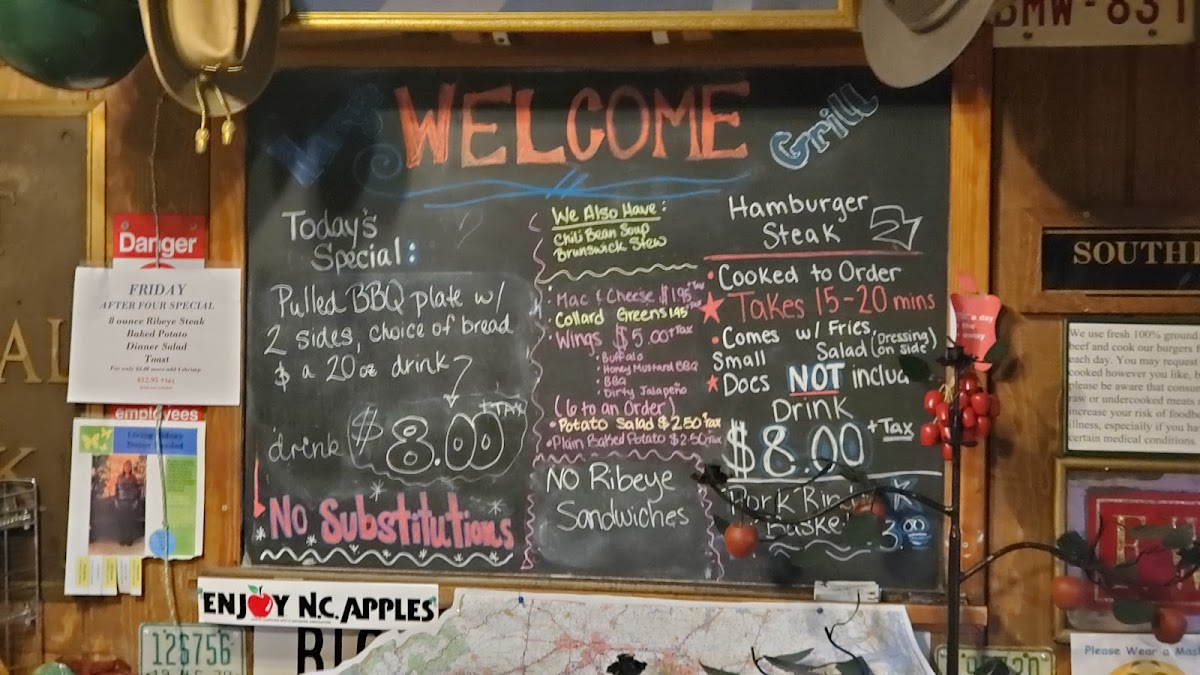 BMW-831
WELCOME
Grill
Today's
Special:
Pulled BBQ plate w/
2 sides, choice of bread
& a 20 oz drink
$8.00 +TAX
drink
No Substitutions
We Also Have:
Chili Bean Soup
Brunswick Stew
Mac & Cheese $1.95 +Tax
Collard Greens 1.95 +Tax
Wings $5.00 +Tax
Buffalo
Honey Mustard BBQ
BBQ
Dirty Jalapeño
(6 to an Order)
Potato Salad $2.50 +Tax
Plain Baked Potato $2.50 +Tax
NO Ribeye
Sandwiches
Hamburger
Steak
Cooked to Order
TAKES 15-20 mins
Comes w/ Fries,
Small Salad (Dressing on side)
Docs NOT includ
Drink
$8.00 +Tax
Pork Rind
Basket
3.00
Danger
FRIDAY
AFTER FOUR SPECIAL
8 ounce Ribeye Steak
Baked Potato
Dinner Salad
Toast
$12.95 +TAX
employees
Living Kidney
Donor Needed
AL
K
ENJOY N.C. APPLES
126756
SOUTHE
We use fresh 100% ground
beef and cook our burgers f
each day. You may request
cooked however you like, b
please be aware that consu
raw or undercooked meats
increase your risk of foodb
illness, especially if you ha
certain medical conditions.
Please Wear a Mas